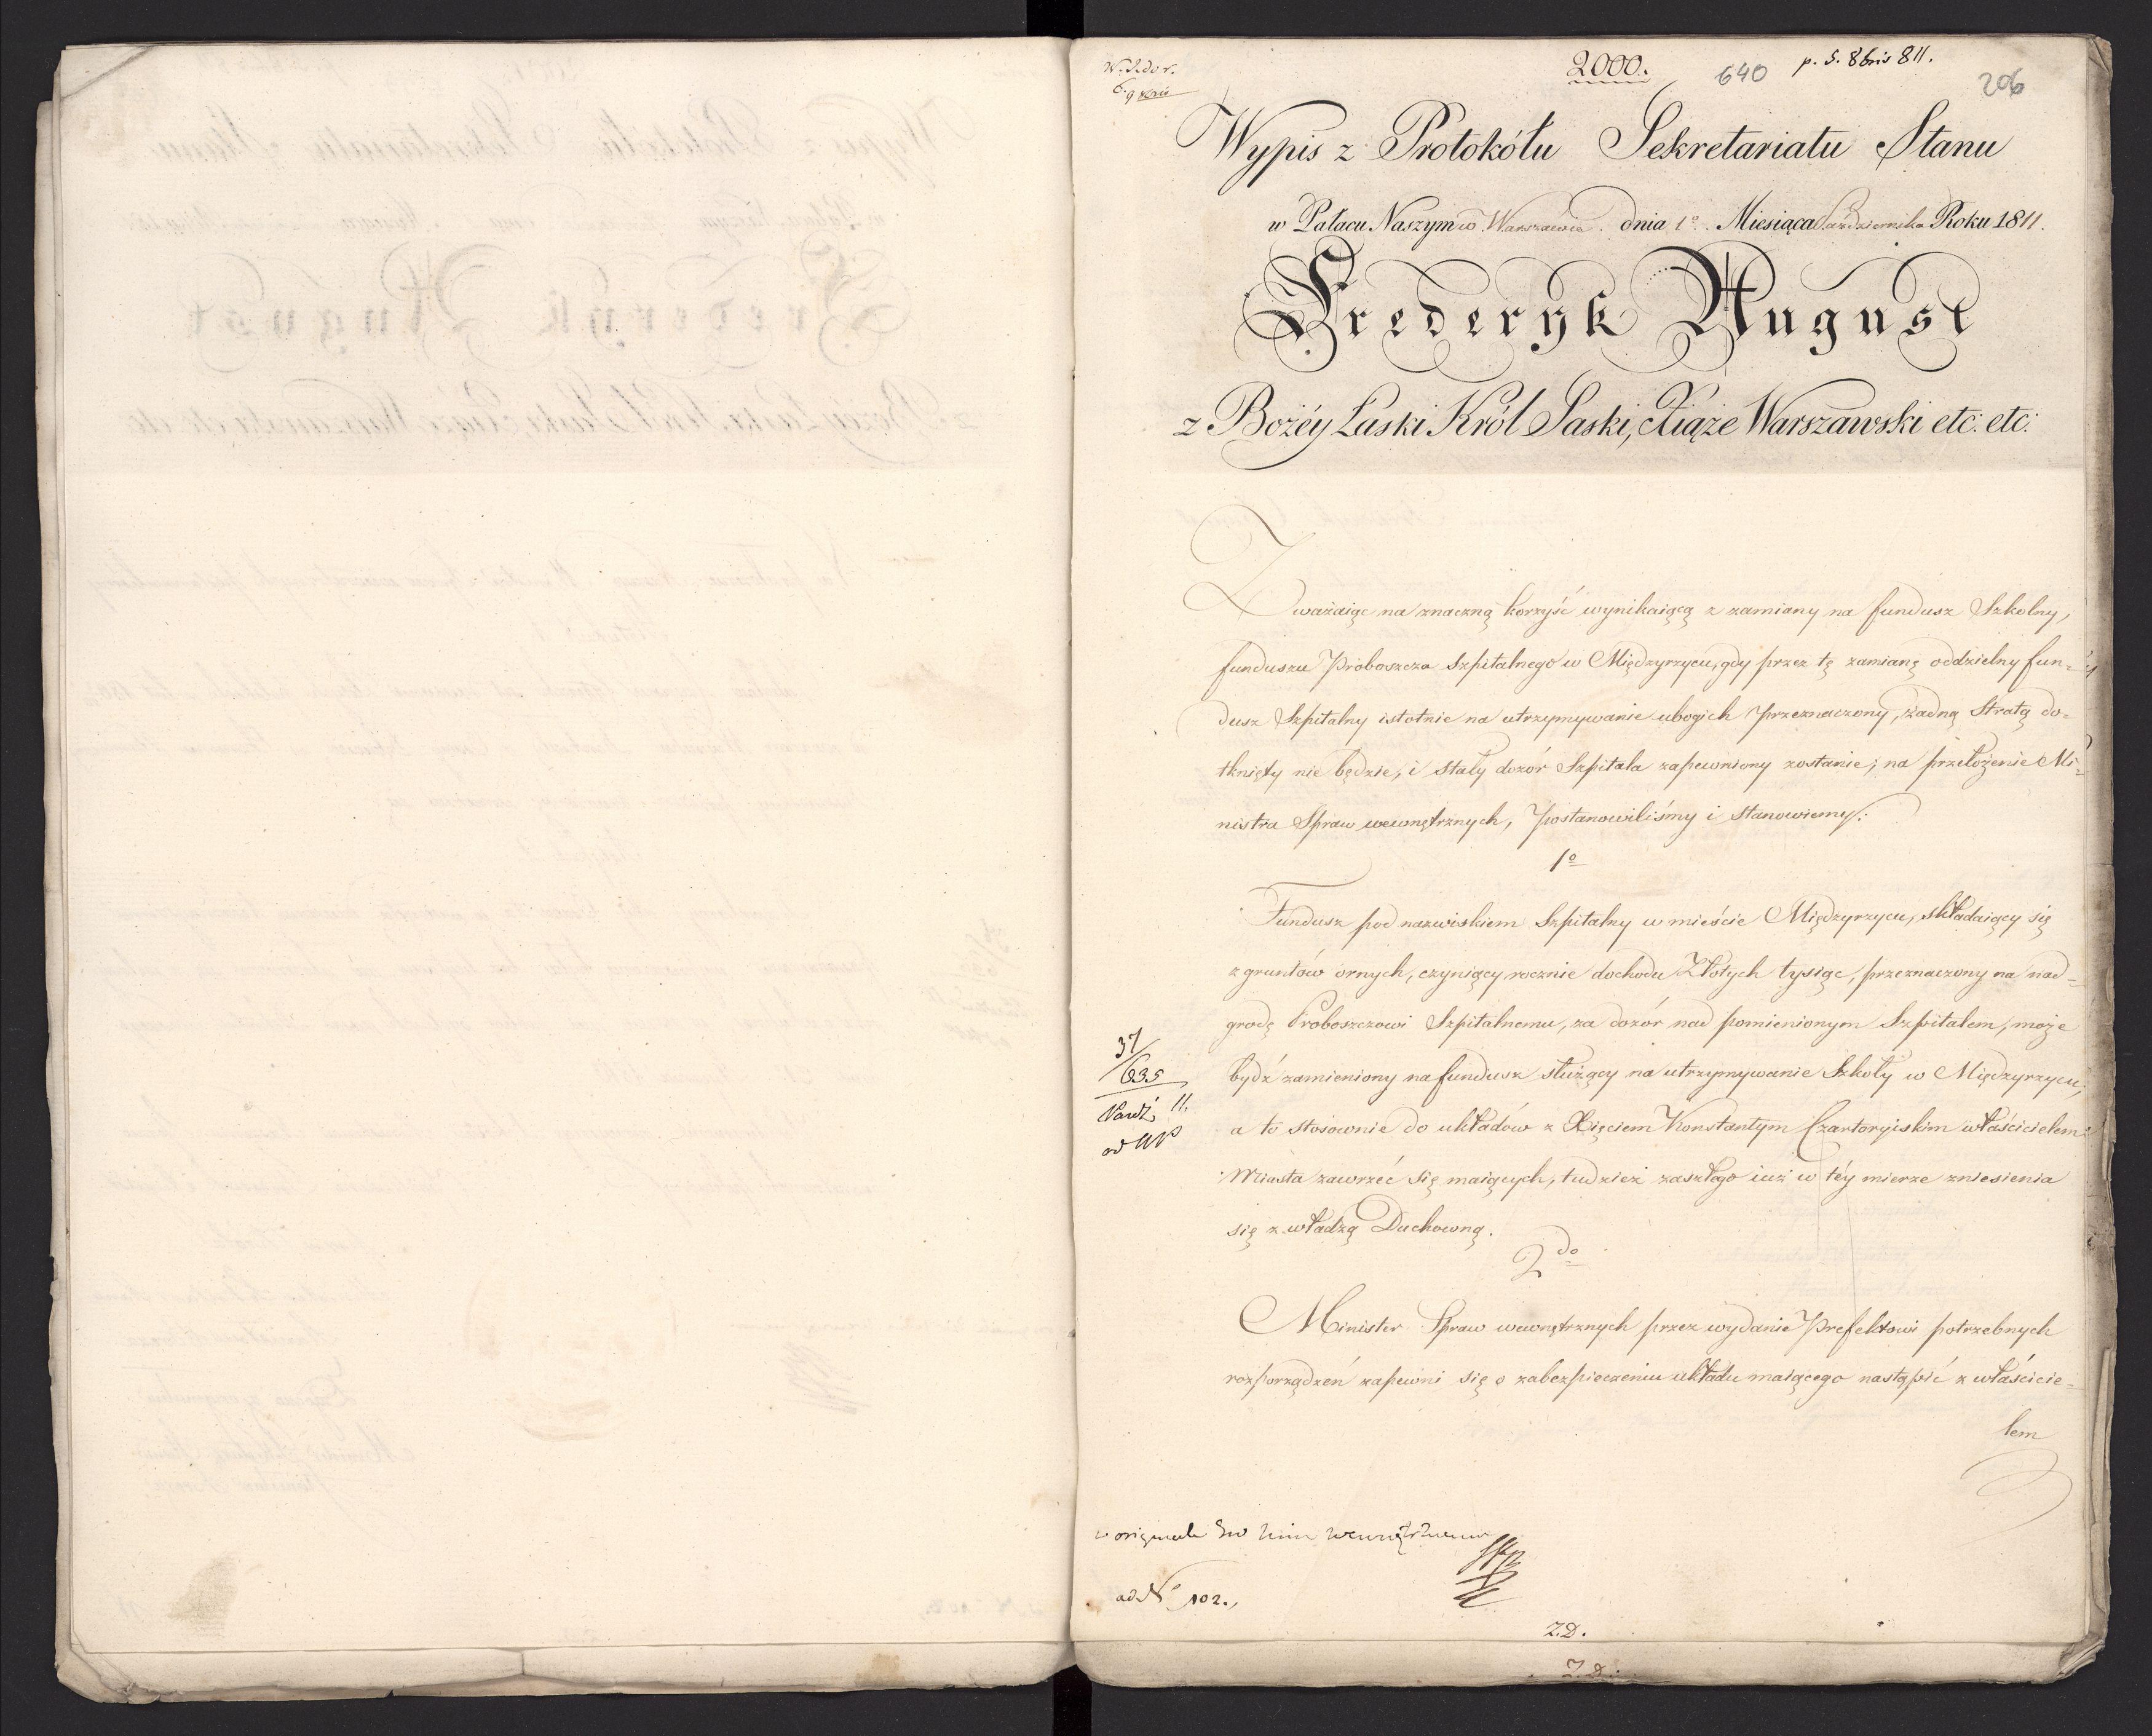 2000. 640 p. 5. 8bris 811. 206
6. 9
Wypis z Protokółu Sekretariatu Stanu
w Pałacu Naszym w Warszawie. dnia 1º. Miesiąca Października Roku 1811.
Frederyk August
z Bożéy Łaski Król Saski, Xiąże Warszawski etc. etc:
Zważaiąc na znaczną korzyść wynikaiącą z zamiany na fundusz Szkolny,
funduszu Proboszcza Szpitalnego w Międzyrzycu, gdy przez tę zamianę oddzielny fun=
dusz Szpitalny istotnie na utrzymywanie ubogich przeznaczony, żadną stratą do=
tknięty nie będzie, i stały dozór Szpitala zapewniony zostanie; na przełożenie Mi=
nistra Spraw wewnętrznych, postanowiliśmy i stanowiemy:
1º
Fundusz pod nazwiskiem Szpitalny w mieście Międzyrzycu, składaiący się
z gruntów ornych, czyniący rocznie dochodu Złotych tysiąc, przeznaczony na nad=
grodę Proboszczowi Szpitalnemu, za dozór nad pomienionym Szpitalem, może
bydź zamieniony na fundusz służący na utrzymywanie Szkoły w Międzyrzycu,
a to stosownie do układów z Xięciem Konstantym Czartoryiskim właścicielem
Miasta zawrzeć się maiących, tudzież zaszłego iuż w téy mierze zniesienia
się z władzą Duchowną.
37
635
Paźd: 11.
2do
Minister Spraw wewnętrznych przez wydanie Prefektowi potrzebnych
rozporządzeń zapewni się o zabezpieczeniu układu maiącego nastąpić z właścicie=
lem
w originale
ad Nº 102.
Z.D.
Z.D.